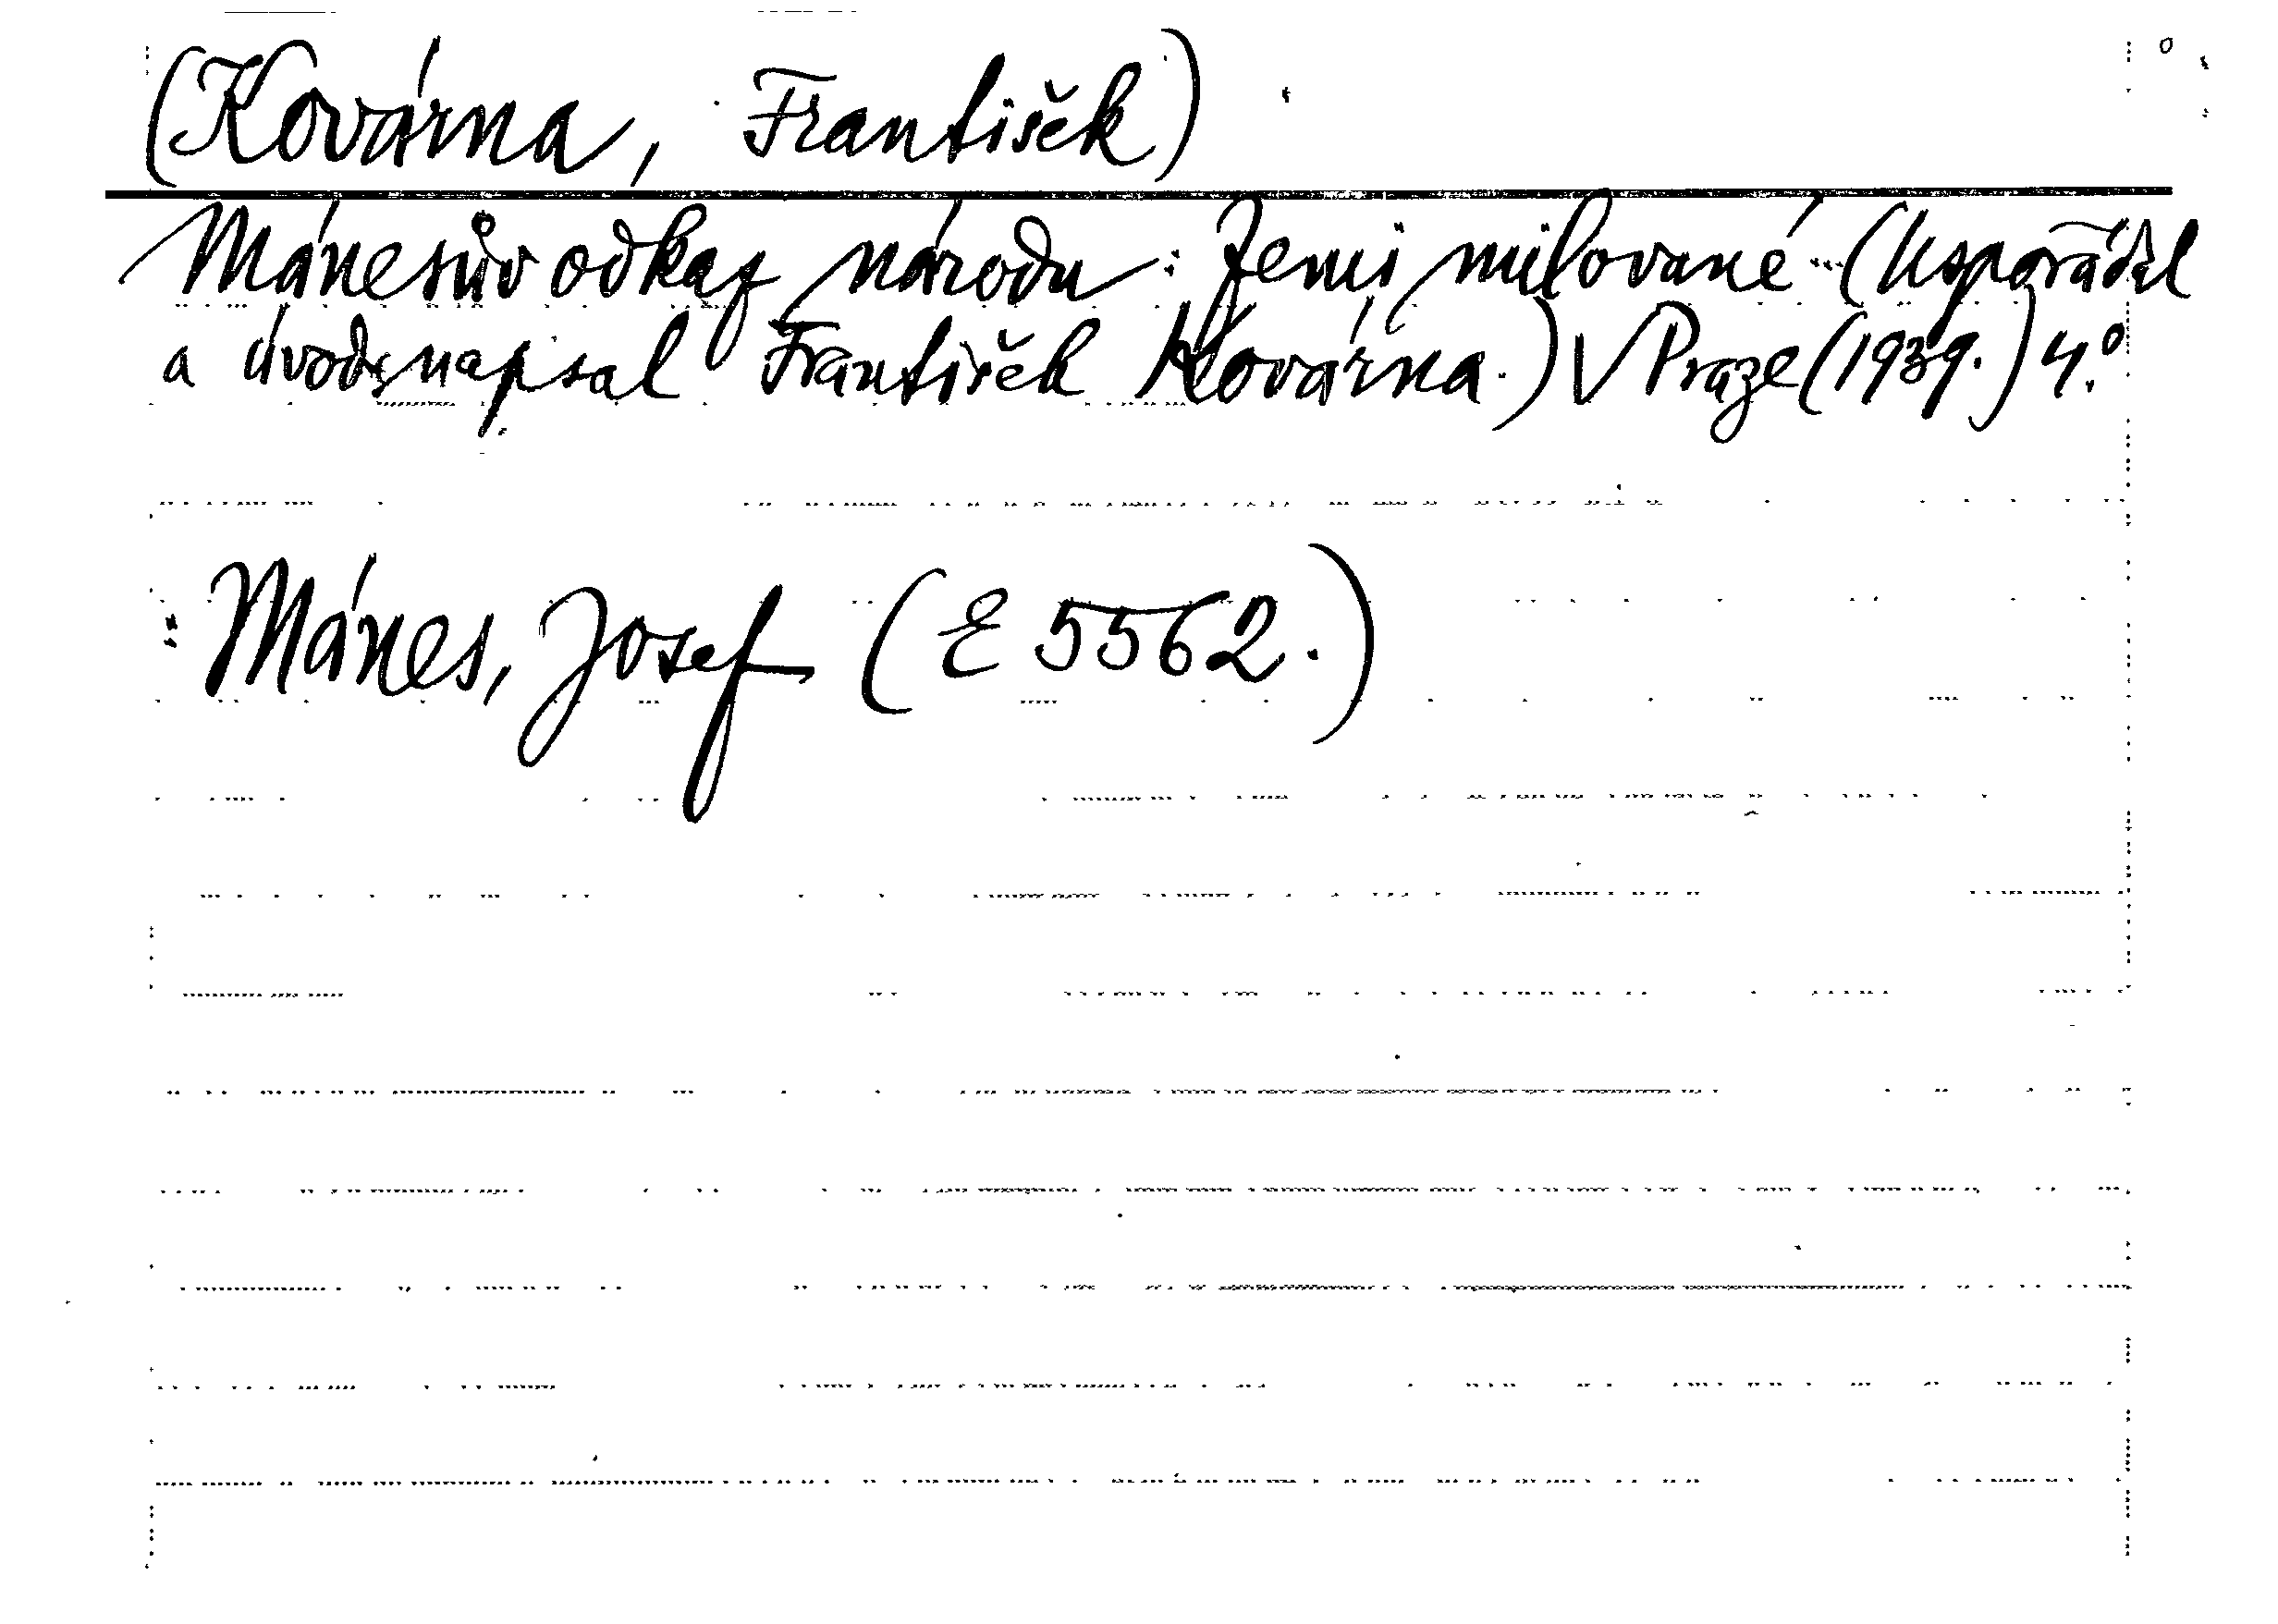 (Kovárna, František)
Mánesův odkaz národu: Zemi milované... (Uspořádal
a úvod napsal František Kovárna.) V Praze (1939.) 4.°
: Mánes, Josef (E 5562.)